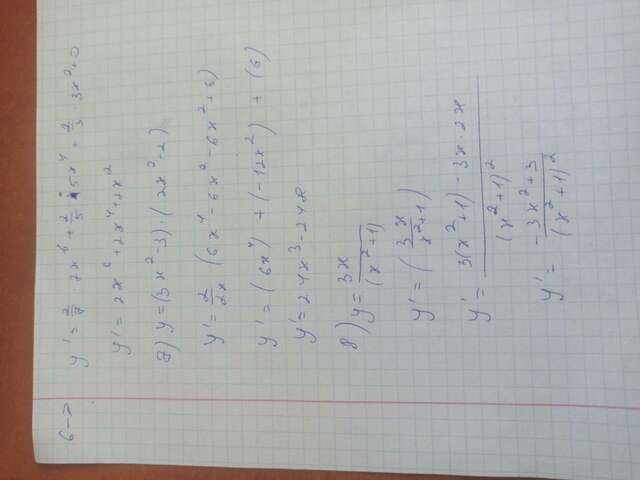 6 ->
y' = 2/7 · 7x^6 + 2/5 · 5x^4 + 2/3 · 3x^2 + 0
y' = 2x^6 + 2x^4 + 2x^2
7) y = (3x^2 - 3) · (2x^2 - 2)
y' = 2/2x (6x^4 - 6x^2 - 6x^2 + 6)
y' = (6x^4) + (-12x^2) + (6)
y' = 24x^3 - 24x
8) y = 3x/(x^2+1)
y' = (3x/x^2+1)
y' = 3(x^2+1) - 3x · 2x/(x^2+1)^2
y' = -3x^2+3/(x^2+1)^2